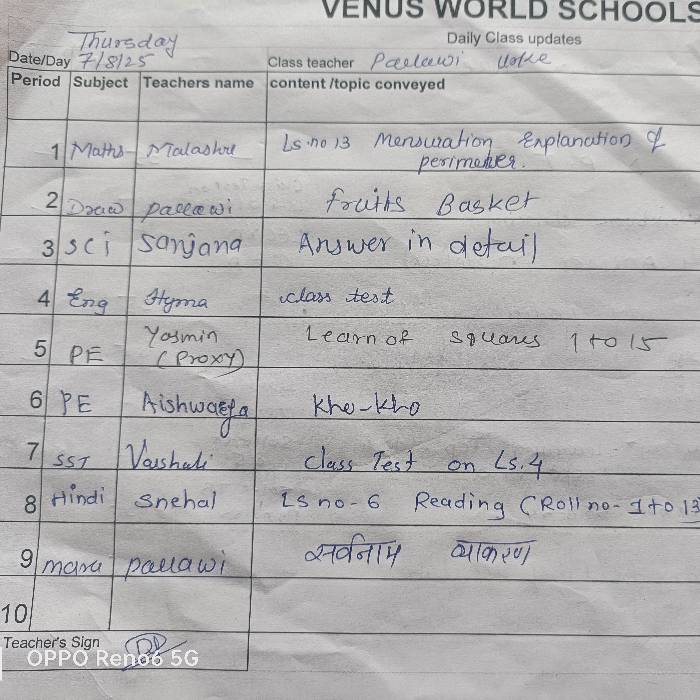 VENUS WORLD SCHOOLS
Daily Class updates
Thursday
Date/Day 7/8/25 Class teacher Pallawi Uoke
Period Subject Teachers name content /topic conveyed
1 Maths Malashre Ls.no 13 Mensuration Explanation of
perimeter.
2 Draw pallawi fruits Basket
3 SCi Sanjana Answer in detail
4 Eng Hyma class test
5 PE Yasmin (Proxy) Learn of squares 1 to 15
6 PE Aishwarya Kho-kho
7 SST Vaishali Class Test on Ls.4
8 Hindi Snehal LS no-6 Reading (Roll no- 1 to 13
9 mara pallawi सर्वनाम व्याकरण
10
Teacher's Sign
OPPO Reno6 5G